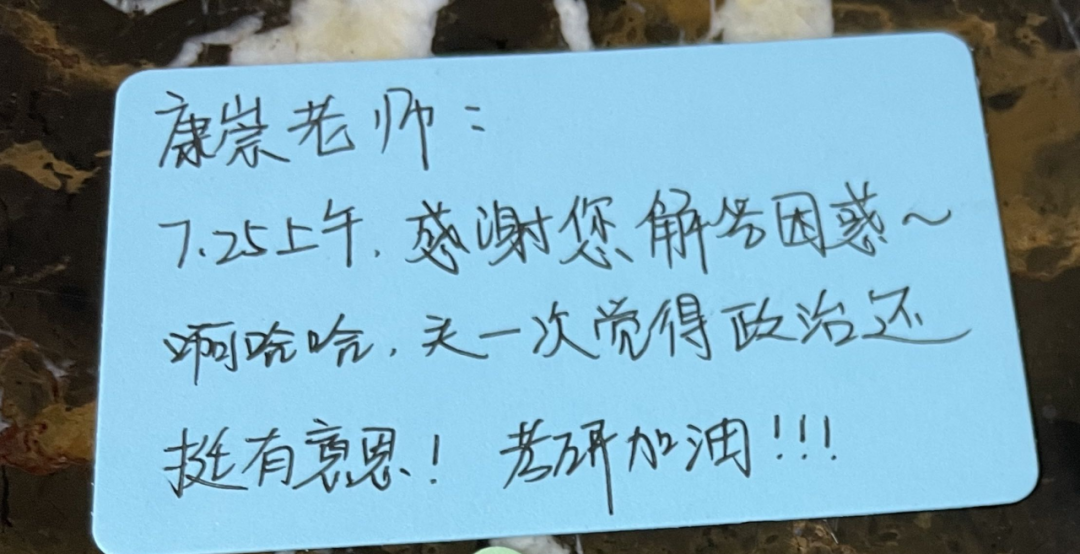 康崇老师：
7.25上午，感谢您解答困惑～
啊哈哈，头一次觉得政治还
挺有意思！考研加油！！！